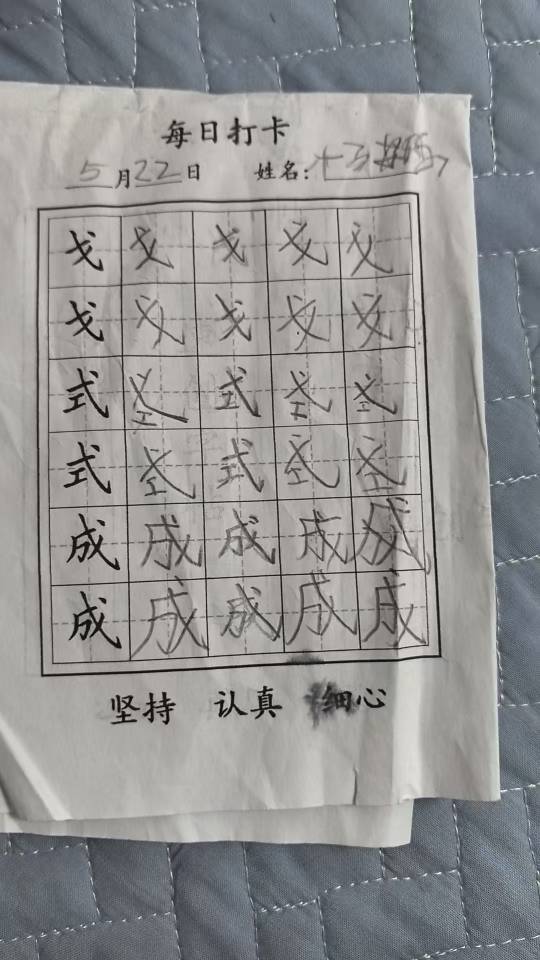 每日打卡
5月22日 姓名:
戈 戈 戈 戈 戈
戈 戈 戈 戈 戈
式 式 式 式 式
式 式 式 式 式
成 成 成 成 成
成 成 成 成 成
坚持 认真 细心